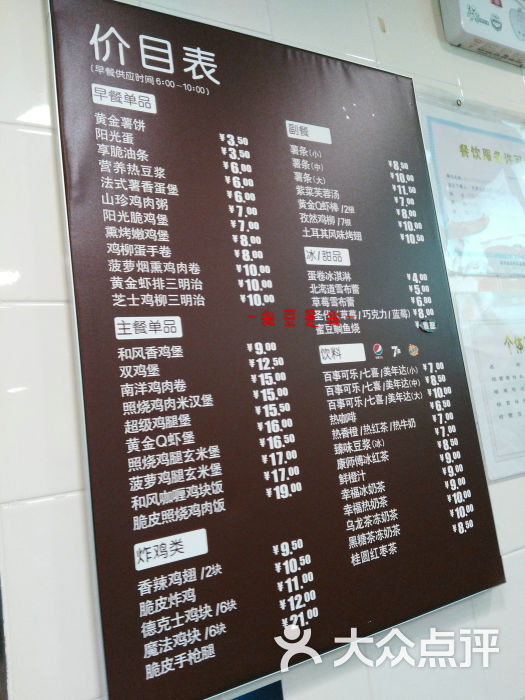 价目表
(早餐供应时间6:00-10:00)
早餐单品
黄金薯饼 ¥3.50
阳光蛋 ¥3.50
享脆油条 ¥6.00
营养热豆浆 ¥6.00
法式薯香蛋堡 ¥6.00
山珍鸡肉粥 ¥7.00
阳光脆鸡堡 ¥7.00
熏烤嫩鸡堡 ¥8.00
鸡柳蛋手卷 ¥8.00
菠萝烟熏鸡肉卷 ¥10.00
黄金虾排三明治 ¥10.00
芝士鸡柳三明治 ¥10.00
主餐单品
和风香鸡堡 ¥9.00
双鸡堡 ¥12.50
南洋鸡肉卷 ¥15.00
照烧鸡肉米汉堡 ¥15.00
超级鸡腿堡 ¥15.50
黄金Q虾堡 ¥16.00
照烧鸡腿玄米堡 ¥16.50
菠萝鸡腿玄米堡 ¥17.00
和风咖喱鸡块饭 ¥17.00
脆皮照烧鸡肉饭 ¥19.00
炸鸡类
香辣鸡翅/2块 ¥9.50
脆皮炸鸡 ¥10.50
德克士鸡块/6块 ¥11.00
魔法鸡块/6块 ¥12.00
脆皮手枪腿 ¥21.00
副餐
薯条(小) ¥8.50
薯条(中) ¥10.00
薯条(大) ¥11.50
紫菜芙蓉汤 ¥7.00
黄金Q虾棒/2根 ¥8.00
孜然鸡柳/7根 ¥10.00
土耳其风味烤翅 ¥10.50
冰/甜品
蛋卷冰淇淋 ¥4.00
北海道雪布蕾 ¥5.00
草莓雪布蕾 ¥6.00
圣代(草莓/巧克力/蓝莓) ¥8.00
蜜豆鲷鱼烧
饮料
百事可乐/七喜/美年达(小) ¥7.00
百事可乐/七喜/美年达(中) ¥8.50
百事可乐/七喜/美年达(大) ¥10.00
热咖啡 ¥6.50
热香橙/热红茶/热牛奶 ¥7.00
臻味豆浆(冰) ¥7.00
康师傅冰红茶 ¥8.00
鲜橙汁 ¥9.00
幸福冰奶茶 ¥9.00
幸福热奶茶 ¥9.00
乌龙茶冻奶茶 ¥10.00
黑糖茶冻奶茶 ¥10.00
桂圆红枣茶 ¥8.50
餐饮服务许可
个体
大众点评